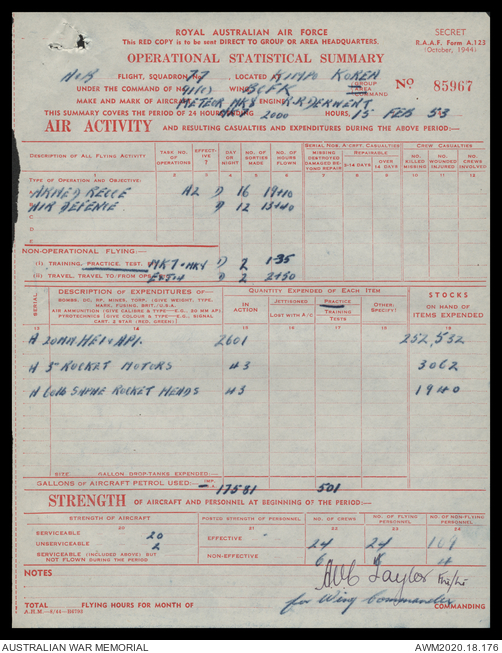 ROYAL AUSTRALIAN AIR FORCE
This RED COPY is to be sent DIRECT TO GROUP OR AREA HEADQUARTERS.
SECRET
R.A.A.F. Form A.123
(October, 1944)
OPERATIONAL STATISTICAL SUMMARY
FLIGHT, SQUADRON No. 77 LOCATED KIMPO KOREA
UNDER THE COMMAND OF No. 91(C) WING BCFK GROUP AREA COMMAND
No 85967
MAKE AND MARK OF AIRCRAFT METEOR MK8 ENGINE R.R. DERWENT
THIS SUMMARY COVERS THE PERIOD OF 24 HOURS ENDING 2000 HOURS, 15 FEB 53
AIR ACTIVITY AND RESULTING CASUALTIES AND EXPENDITURES DURING THE ABOVE PERIOD:—
DESCRIPTION OF ALL FLYING ACTIVITY TASK NO. OF OPERATIONS EFFECTIVE ? DAY OR NIGHT NO. OF SORTIES MADE NO. OF HOURS FLOWN SERIAL NOS. A'CRAFT CASUALTIES CREW CASUALTIES
MISSING DESTROYED DAMAGED BEYOND REPAIR REPAIRABLE 2-14 DAYS OVER 14 DAYS NO. KILLED MISSING NO. WOUNDED INJURED NO. OF CREWS
1 2 3 4 5 6 7 8 9 10 11 12
TYPE OF OPERATION AND OBJECTIVE:
ARMED RECCE A2 D 16 19+10
AIR DEFENSE D 12 13+40
C
D
E
NON-OPERATIONAL FLYING:—
(i) TRAINING, PRACTICE, TEST. MK7 + MK4 D 2 1-35
(ii) TRAVEL, TRAVEL TO/FROM OPER. D 2 2+50
SERIAL DESCRIPTION OF EXPENDITURES OF— QUANTITY EXPENDED OF EACH ITEM STOCKS ON HAND OF ITEMS EXPENDED
BOMBS, DC, RP, MINES, TORP. (GIVE WEIGHT, TYPE, MARK, FUSING, BRIT./U.S.A.
AIR AMMUNITION (GIVE CALIBRE & TYPE—E.G. 20 MM AP)
PYROTECHNICS (GIVE COLOUR & TYPE—E.G., SIGNAL CART. 2 STAR (RED, GREEN))
IN ACTION JETTISONED LOST WITH A/C PRACTICE TRAINING TESTS OTHER: SPECIFY!
13 14 15 16 17 18 19
A 20MM HEI & API. 2601 252,532
A 3" ROCKET MOTORS 43 3062
A 60lb SAPHE ROCKET HEADS 43 1940
SIZE GALLON DROP-TANKS EXPENDED:—
GALLONS OF AIRCRAFT PETROL USED: 17581 501
STRENGTH OF AIRCRAFT AND PERSONNEL AT BEGINNING OF THE PERIOD:—
STRENGTH OF AIRCRAFT POSTED STRENGTH OF PERSONNEL NO. OF CREWS NO. OF FLYING PERSONNEL NO. OF NON-FLYING PERSONNEL
20 21 22 23 24
SERVICEABLE 20 EFFECTIVE 24 24 109
UNSERVICEABLE 2
SERVICEABLE (INCLUDED ABOVE) BUT NOT FLOWN DURING THE PERIOD NON-EFFECTIVE 6 4
NOTES
Taylor
for Wing Commander COMMANDING
TOTAL FLYING HOURS FOR MONTH OF
AUSTRALIAN WAR MEMORIAL AWM2020.18.176